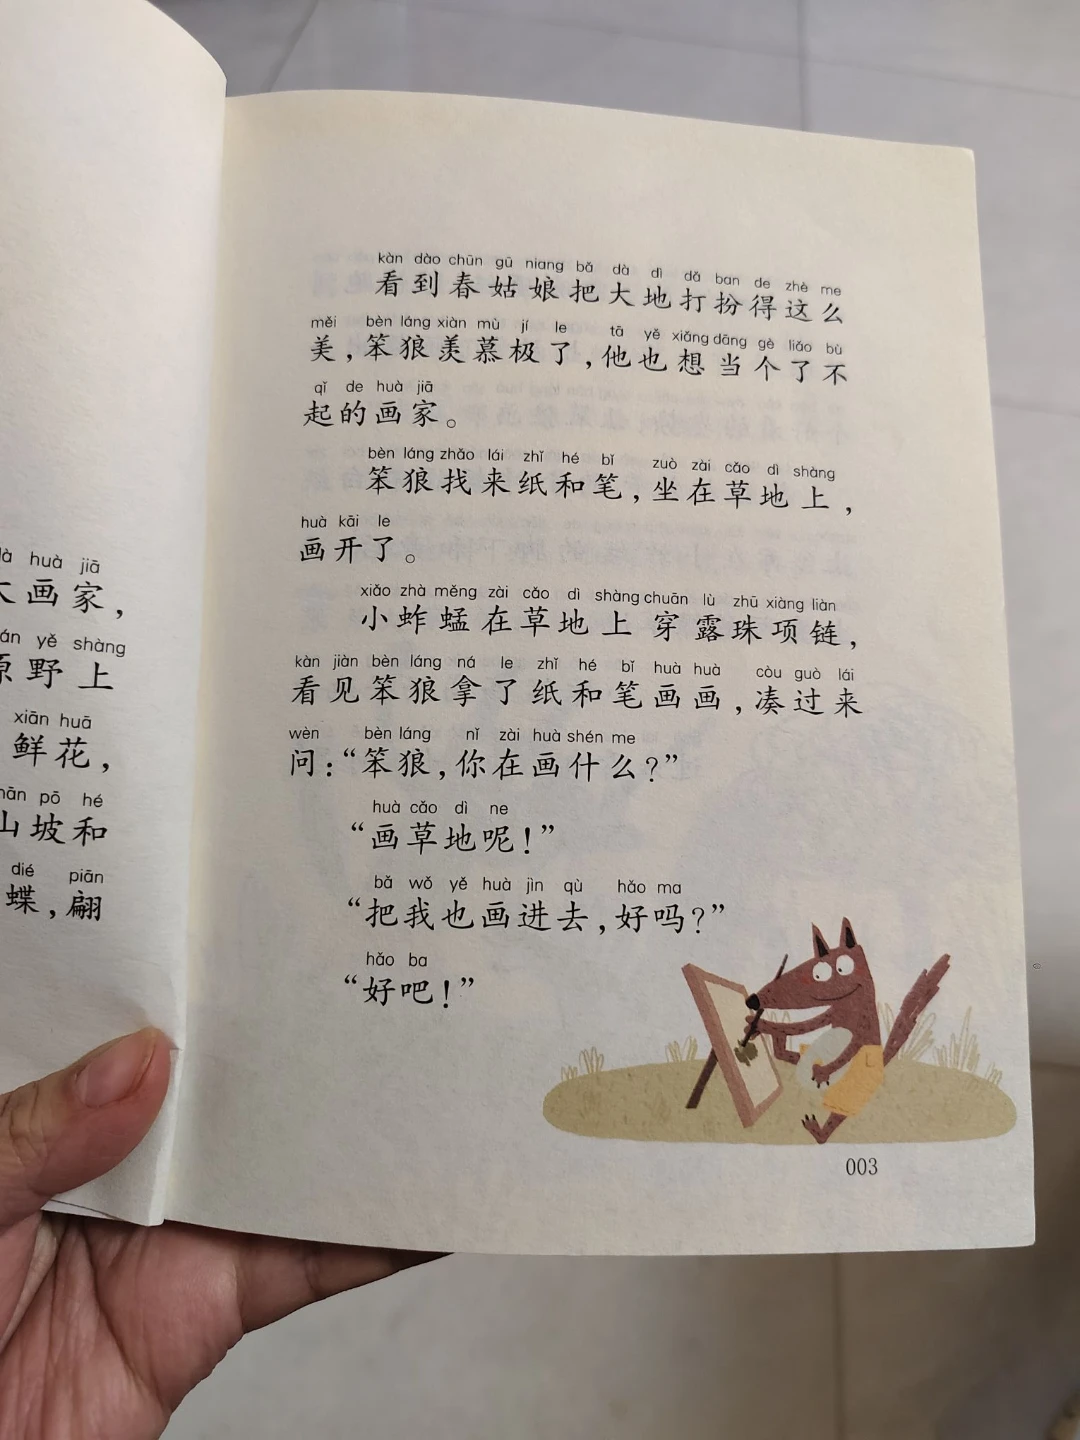 là huà jiā
大画家，
án yě shàng
原野上
xiān huā
鲜花，
hān pō hé
山坡和
dié piān
蝶，翩
kàn dào chūn gū niang bǎ dà dì dǎ ban de zhè me
看到春姑娘把大地打扮得这么
měi bèn láng xiàn mù jí le tā yě xiǎng dāng gè liǎo bù
美，笨狼羡慕极了，他也想当个了不
qǐ de huà jiā
起的画家。
bèn láng zhǎo lái zhǐ hé bǐ zuò zài cǎo dì shàng
笨狼找来纸和笔，坐在草地上，
huà kāi le
画开了。
xiǎo zhà měng zài cǎo dì shàng chuān lù zhū xiàng liàn
小蚱蜢在草地上穿露珠项链，
kàn jiàn bèn láng ná le zhǐ hé bǐ huà huà còu guò lái
看见笨狼拿了纸和笔画画，凑过来
wèn bèn láng nǐ zài huà shén me
问：“笨狼，你在画什么？”
huà cǎo dì ne
“画草地呢！”
bǎ wǒ yě huà jìn qù hǎo ma
“把我也画进去，好吗？”
hǎo ba
“好吧！”
003